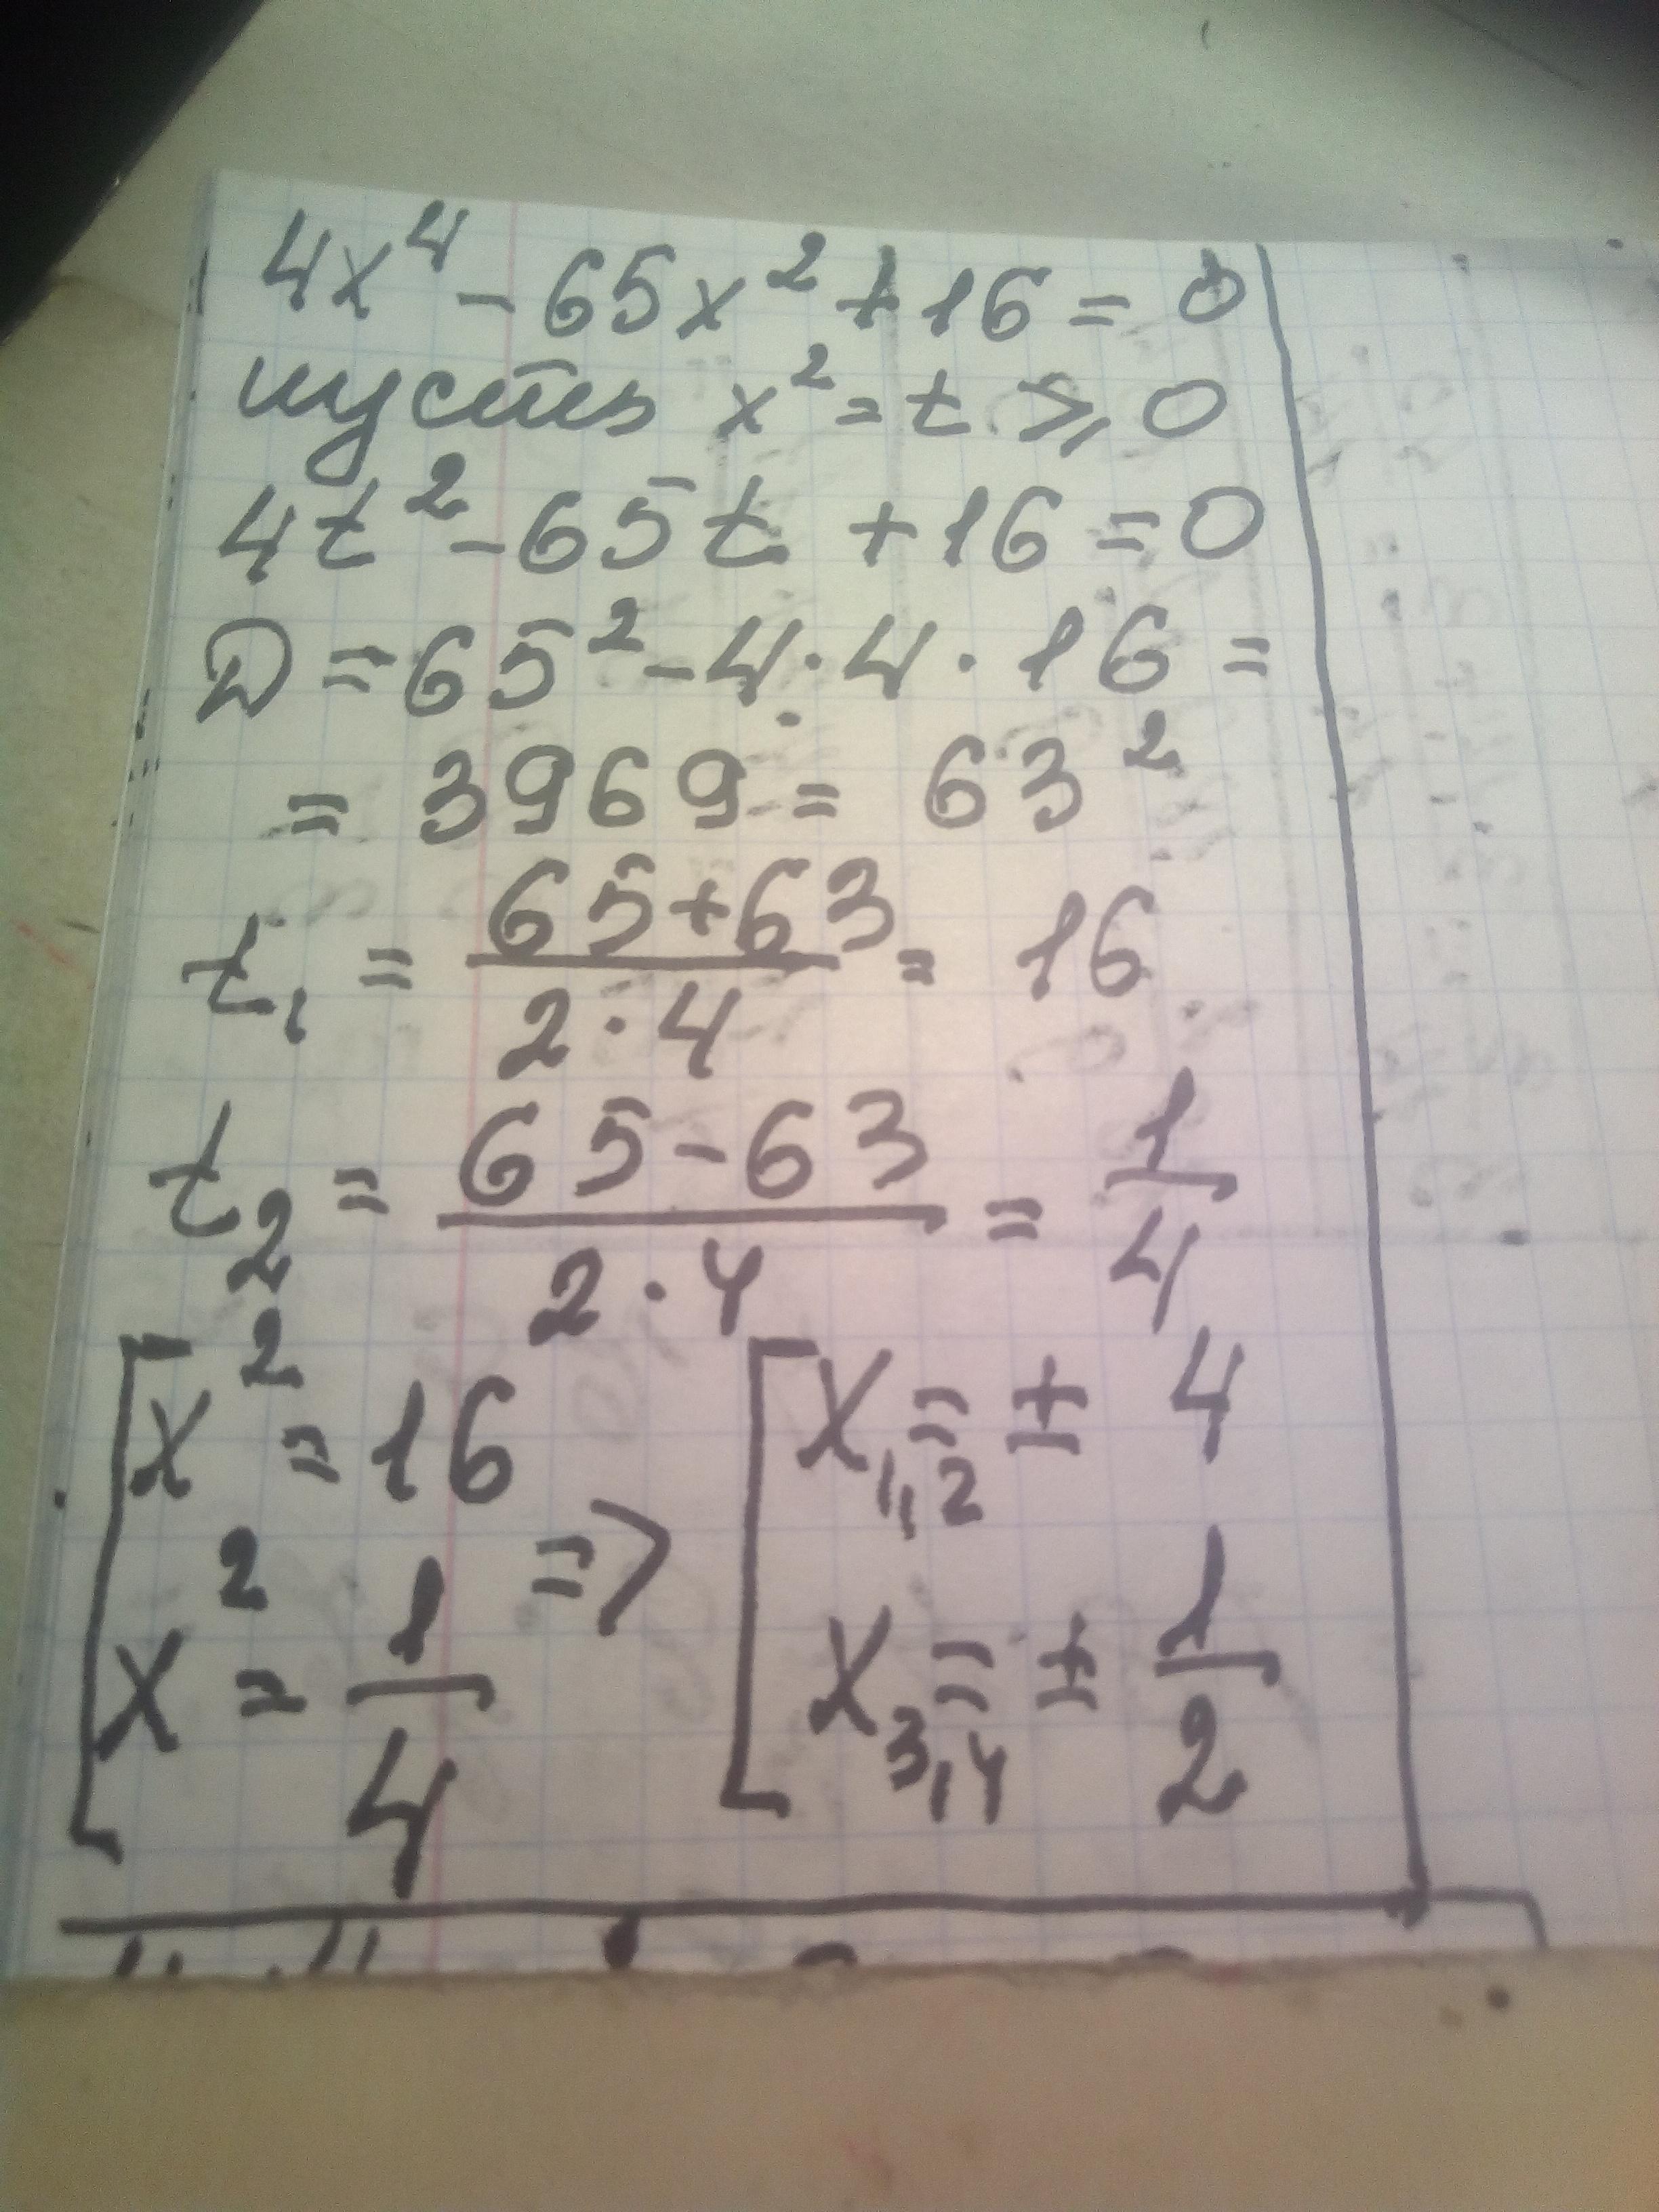 4x⁴ - 65x² + 16 = 0
пусть x² = t ⩾ 0
4t² - 65t + 16 = 0
D = 65² - 4 · 4 · 16 =
= 3969 = 63²
t₁ = (65+63)/(2·4) = 16
t₂ = (65-63)/(2·4) = 1/4
[ x² = 16 => [ x₁,₂ = ± 4
x² = 1/4 x₃,₄ = ± 1/2